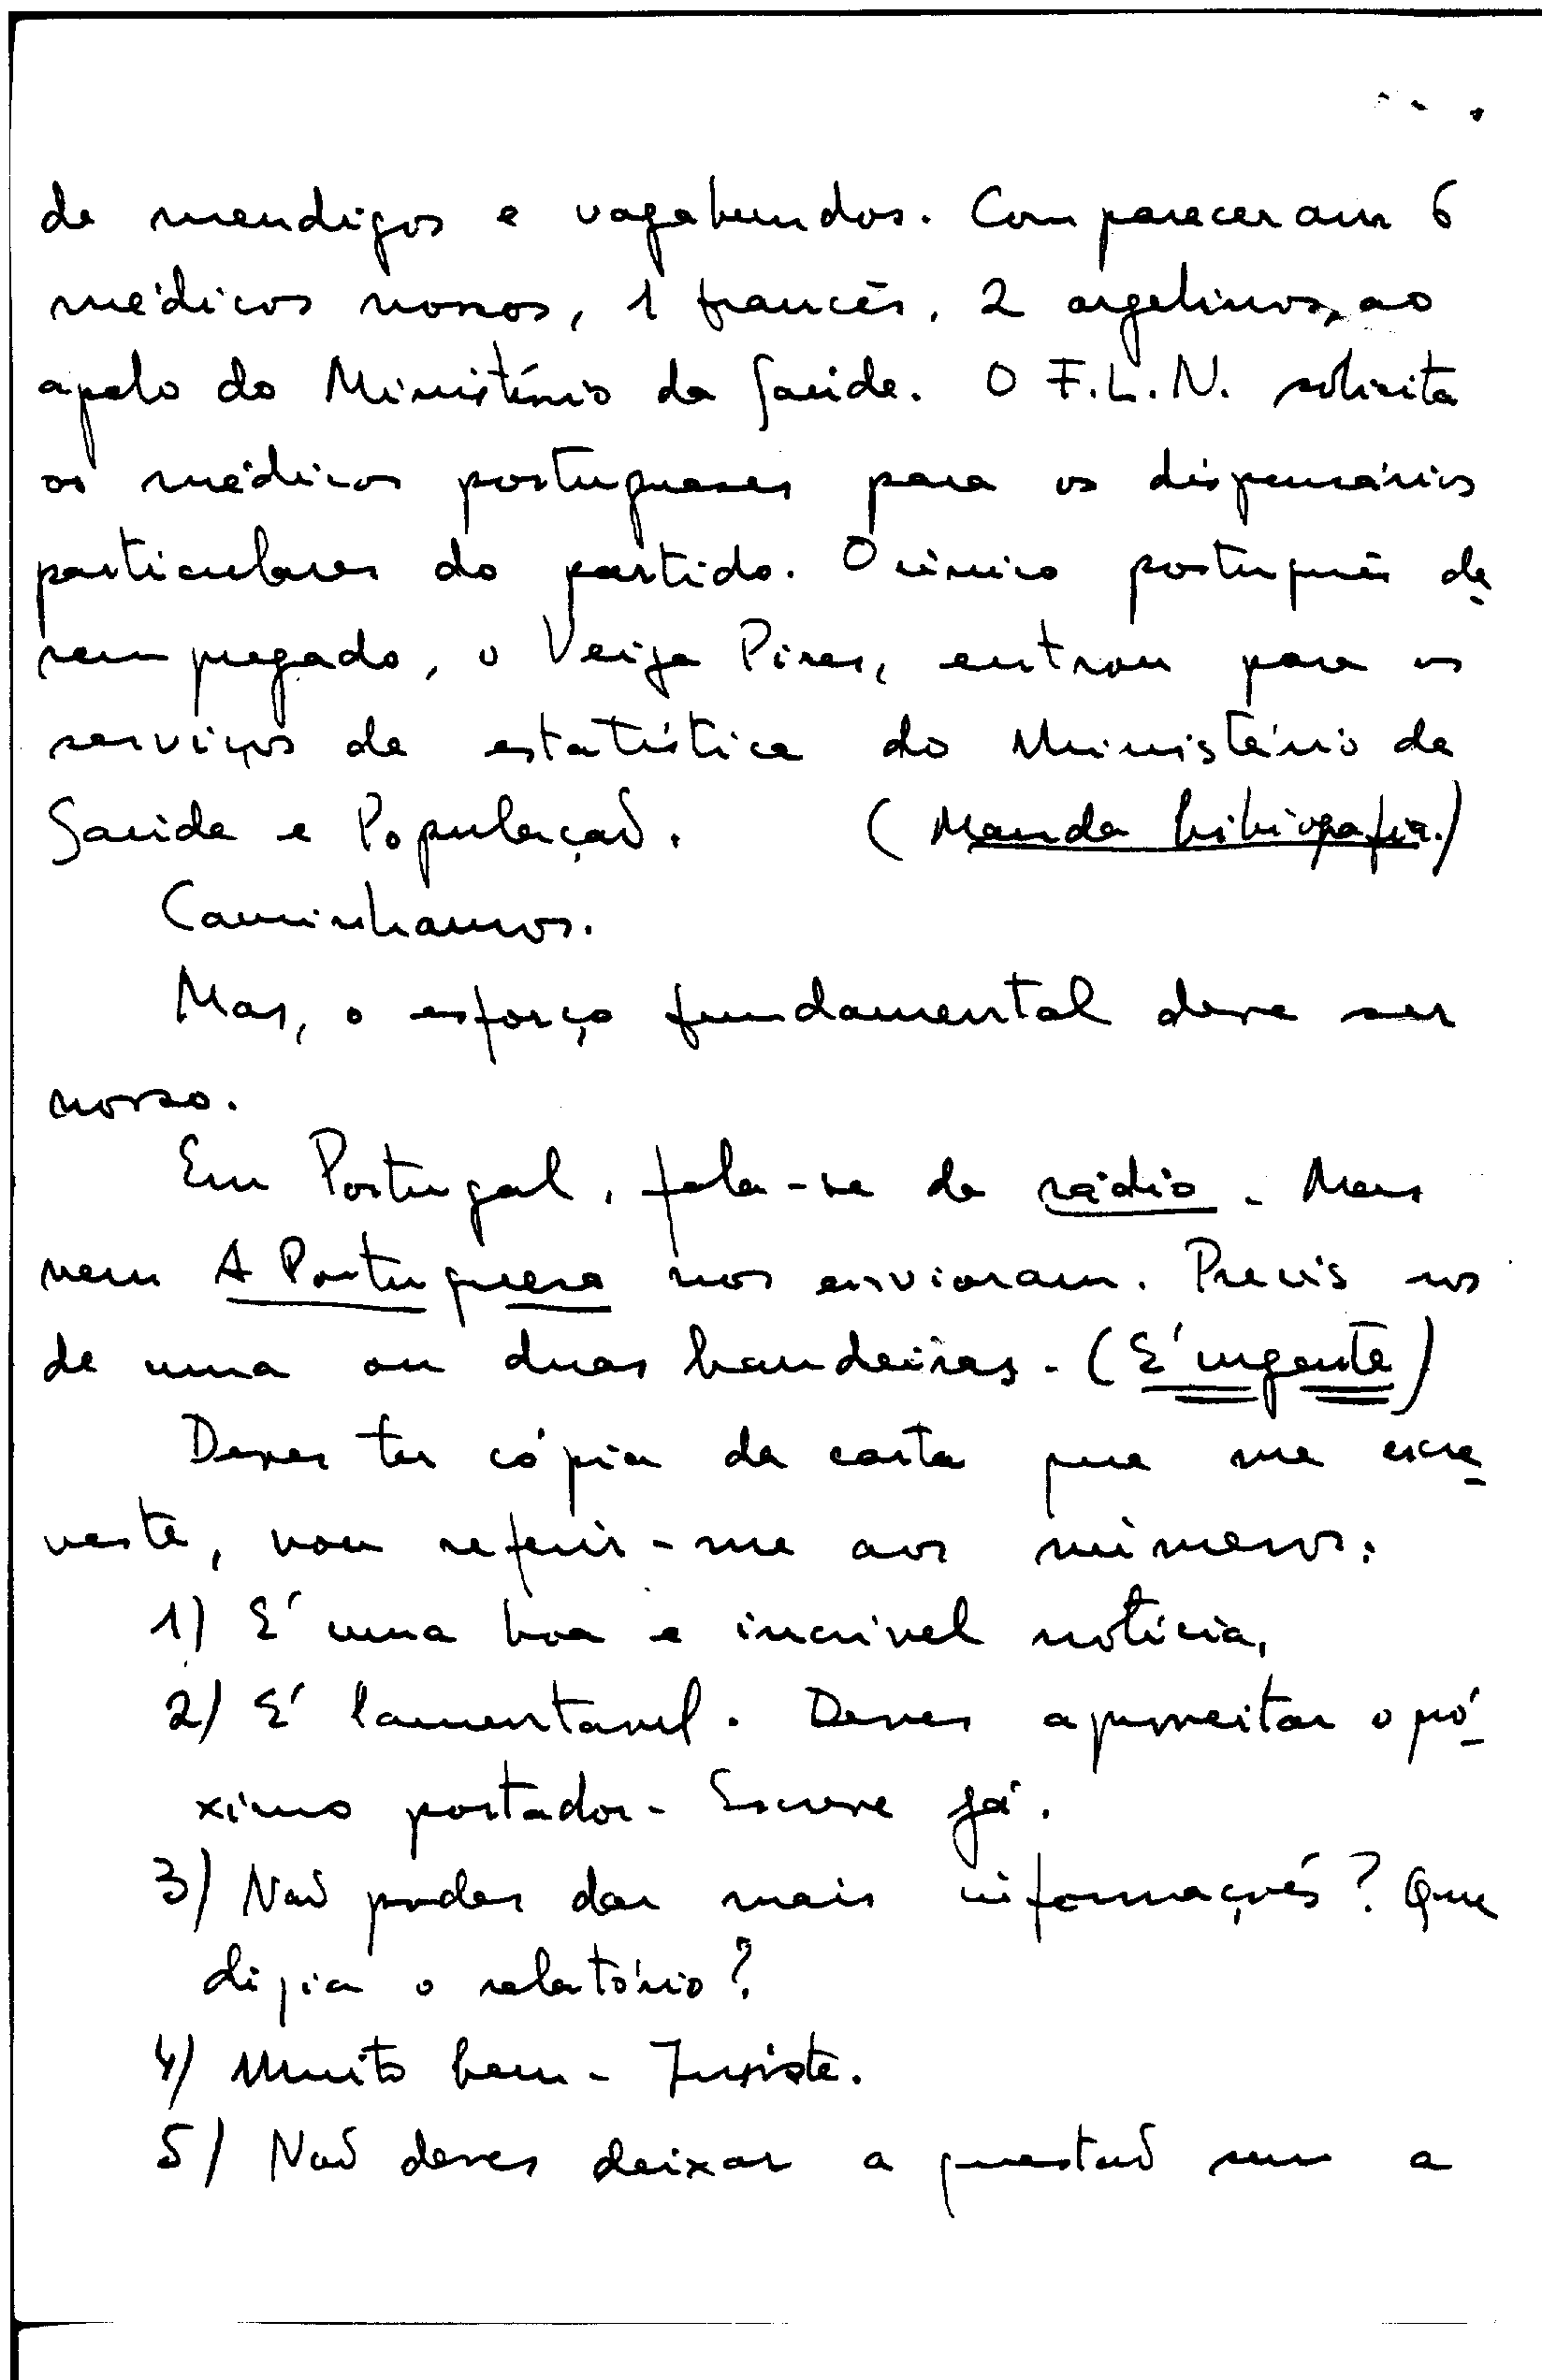 de mendigos e vagabundos. Compareceram 6
médicos nossos, 1 francês, 2 argelinos, ao
apelo do Ministério da Saúde. O F.L.N. solicita
os médicos portugueses para os dispensários
particulares do partido. O único português de
sempregado, o Veiga Pires, entrou para os
serviços de estatística do Ministério da
Saúde e População. (Manda bibiografia.)
Caminhamos.
Mas, o esforço fundamental deve ser
nosso.
Em Portugal, fala-se da rádio. Mas
nem A Portuguesa nos enviaram. Precis
de uma ou duas bandeiras. (É urgente)
Deves ter cópia da carta que me escre
veste, vou referir-me aos números:
1) É uma boa e incrivel notícia,
2) É lamentavel. Deves aproveitar o pró-
ximo portador. Escreve já.
3) Não podes dar mais informações? Que
dizia o relatório?
4) Muito bem. Insiste.
5) Não deves deixar a questão sem a